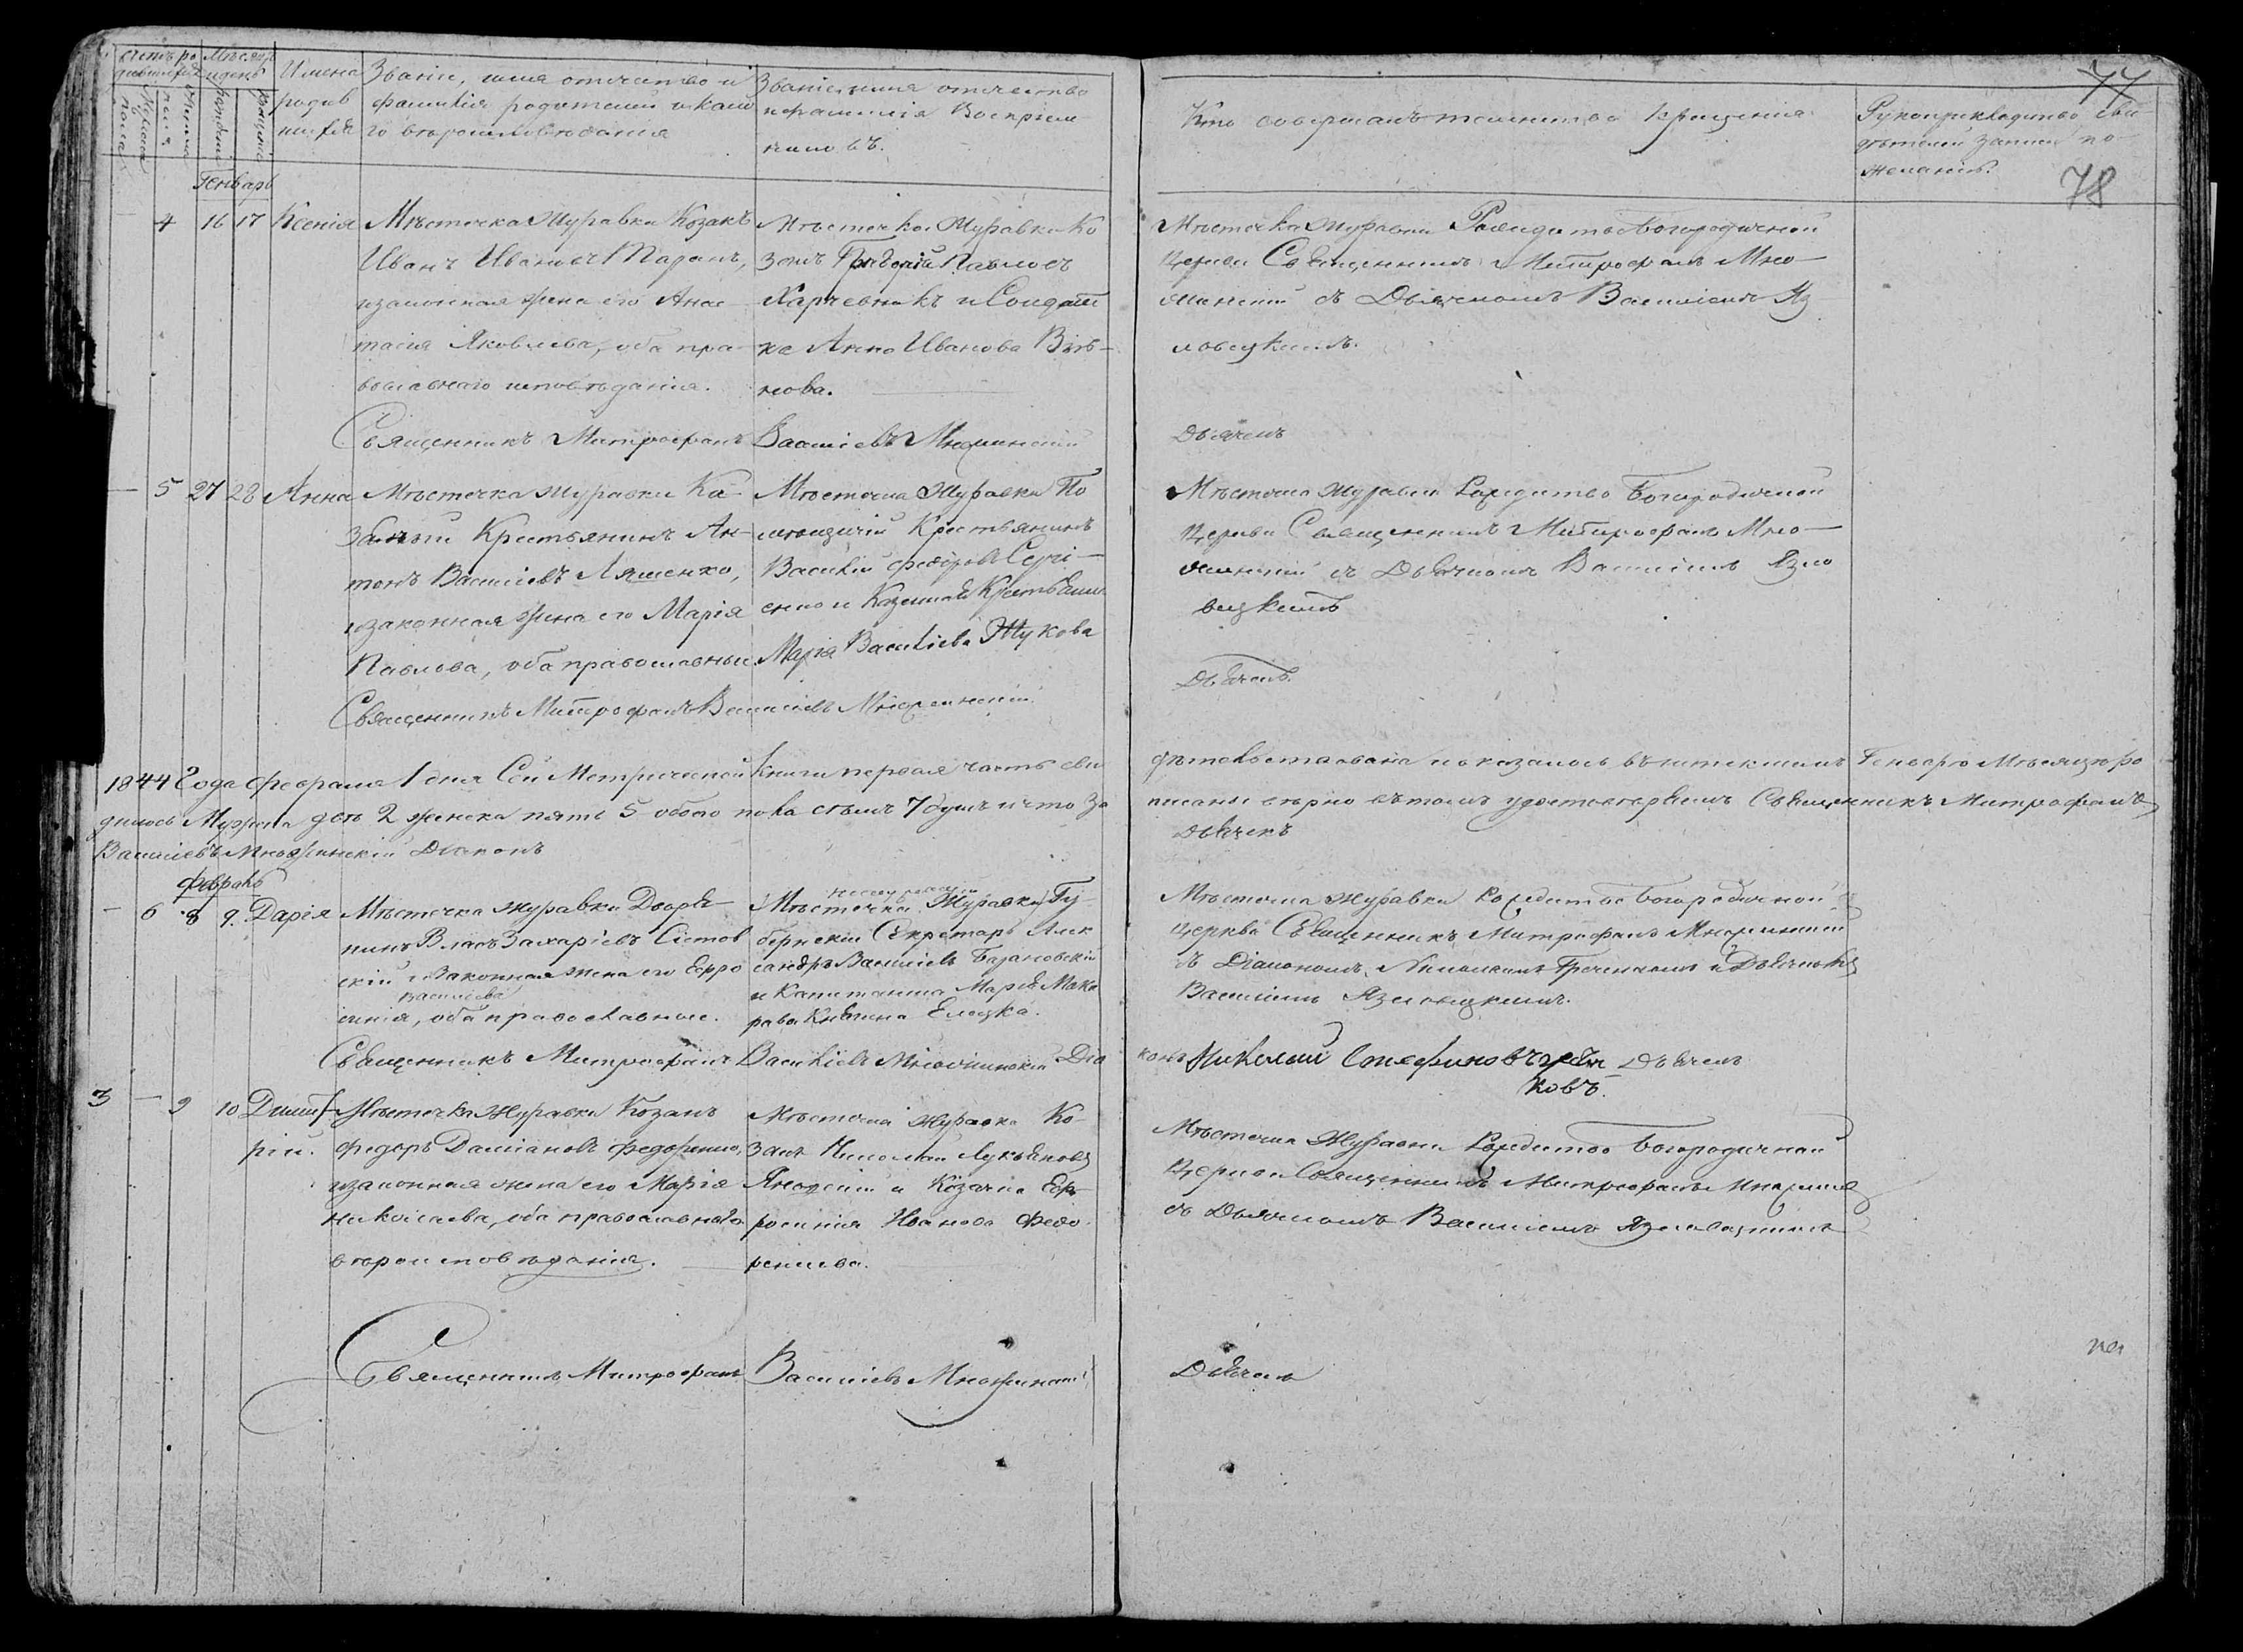 счетъ ро
дившихся
Мѣсяцъ
и день
мужеска
пола
женска
пола
рожденія
крещенія
Имена
родив
шихся
Званіе, имя отчество и
фамилія родителей и како
го вѣроисповѣданія
Званіе имя отчество
и фамилія Воспріем
никовъ.
Кто совершалъ таинство крещенія
Рукоприкладство сви
дѣтелей записи по
желанію.
77
78
Генварь
4 16 17 Ксенія
Мѣстечка Журавки Козакъ
Иванъ Ивановъ Таранъ,
и законная жена его Анас
тасія Яковлева, оба пра
вославнаго исповѣданія.
Мѣстечка Журавки Ко
закъ Григорій Павловъ
Харчевникъ и Солдат
ка Анна Иванова
нова.
Мѣстечка Журавки Рождество Богородичной
Церкви Священникъ Митрофанъ Мно
жинскій съ Дьячкомъ Василіемъ Яз
ловецкимъ.
Священникъ Митрофанъ Васліевъ Множинскій
Дьячекъ
— 5 27 28 Анна
Мѣстечка Журавки Ка
зенный Крестьянинъ Ан
тонъ Василіевъ Ляшенко,
и законная жена его Марія
Павлова, оба православные.
Мѣстечка Журавки По
мѣщичій Крестьянинъ
Василій Федоровъ Сергі
енко и Казенная Крестьянка
Марія Василіева Жукова
Мѣстечка Журавки Рождество Богородичной
Церкви Священникъ Митрофанъ Мно
жинскій съ Дьячкомъ Василіемъ Язло
вецкимъ
Священникъ Митрофанъ Василіевъ Множинскій
Дьячекъ.
1844 Года Февраля 1 дня Сей Метрической Книги первая часть сви
дѣтельствована и оказалось въ истекшемъ Генварѣ Мѣсяцѣ ро
дилось Мужеска два 2 женска пять 5 обоего пола семь 7 душъ и что за
писаны вѣрно въ томъ удостовѣряемъ Священникъ Митрофанъ
Василіевъ Множинскій Діаконъ
Дьячекъ
Февраль
— 6 8 9. Дарія
Мѣстечка Журавки Дворя
нинъ Власъ Захаріевъ Сѣтов
скій и Законная жена его Евфро
Василіева
синія, оба православные.
Мѣстечка Журавки Гу
бернскій Секретарь Алек
сандръ Василіевъ Базановскій
и Капитанша Марія Мака
рова Княгина Елецка.
Мѣстечка Журавки Рождество Богородичной
Церкви Священникъ Митрофанъ Множинскій
съ Діакономъ Николаемъ Гречкомъ и Дьячкомъ
Василіемъ Язловецкимъ.
Священникъ Митрофанъ Василіевъ Множинскій Діа
конъ Николай Стефановъ
ковъ.
Дьячекъ
3 — 9 10 Димит
рій.
Мѣстечка Журавки Козакъ
Федоръ Даміановъ Федоренко,
и законная жена его Марія
Николаева, оба православнаго
вѣроисповѣданія.
Мѣстечка Журавки Ко
закъ Николай Лукьяновъ
и Козачка Евф
росинія Иванова Федо
ренкова.
Мѣстечка Журавки Рождество Богородичной
Церкви Священникъ Митрофанъ Множинскій
съ Дьячкомъ Василіемъ Язловецкимъ
Священникъ Митрофанъ Василіевъ Множинскій
Дьячекъ